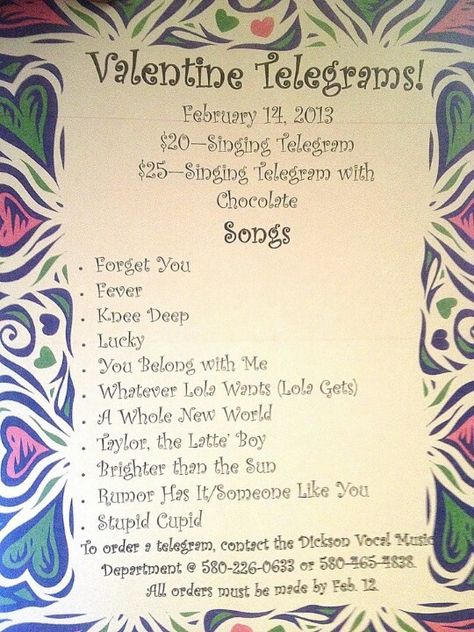 Valentine Telegrams!
February 14, 2013
$20—Singing Telegram
$25—Singing Telegram with
Chocolate
Songs
• Forget You
• Fever
• Knee Deep
• Lucky
• You Belong with Me
• Whatever Lola Wants (Lola Gets)
• A Whole New World
• Taylor, the Latte' Boy
• Brighter than the Sun
• Rumor Has It/Someone Like You
• Stupid Cupid
To order a telegram, contact the Dickson Vocal Music
Department @ 580-226-0633 or 580-465-4838.
All orders must be made by Feb. 12.